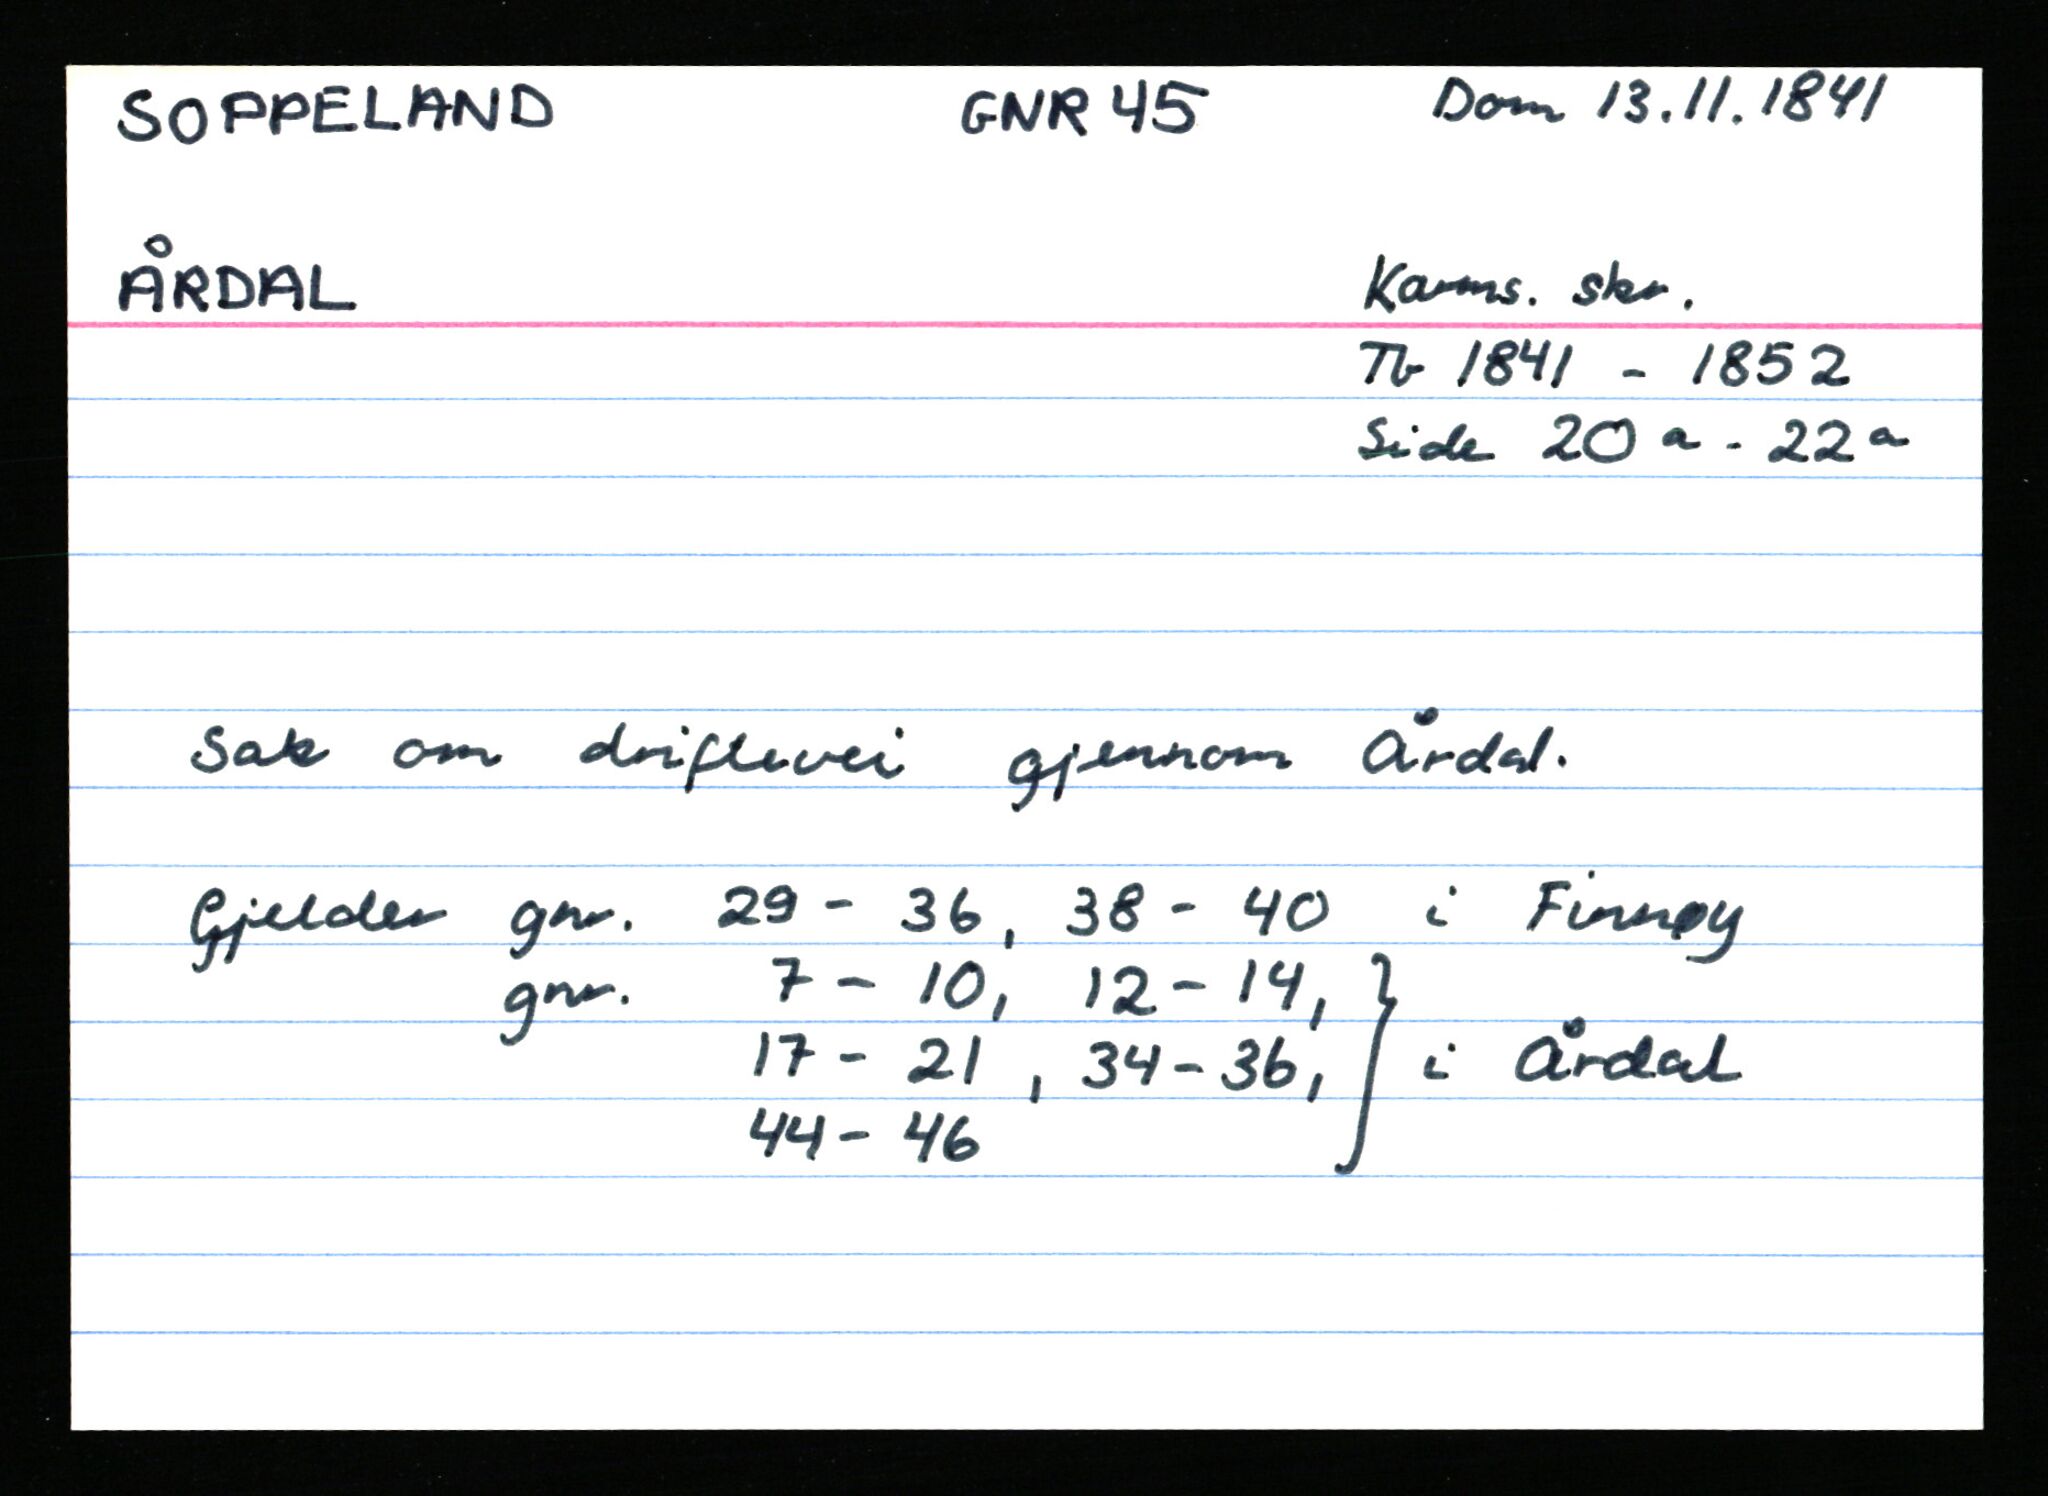 SOPPELAND GNR 45 Dom 13.11.1841
ÅRDAL Karms. skr.
Tb 1841 - 1852
Side 20 a - 22 a
Sak om driftevei gjennom Årdal.
Gjelder gnr. 29 - 36, 38 - 40 i Finnøy
gnr. 7 - 10, 12 - 14,
17 - 21, 34 - 36, i Årdal
44 - 46